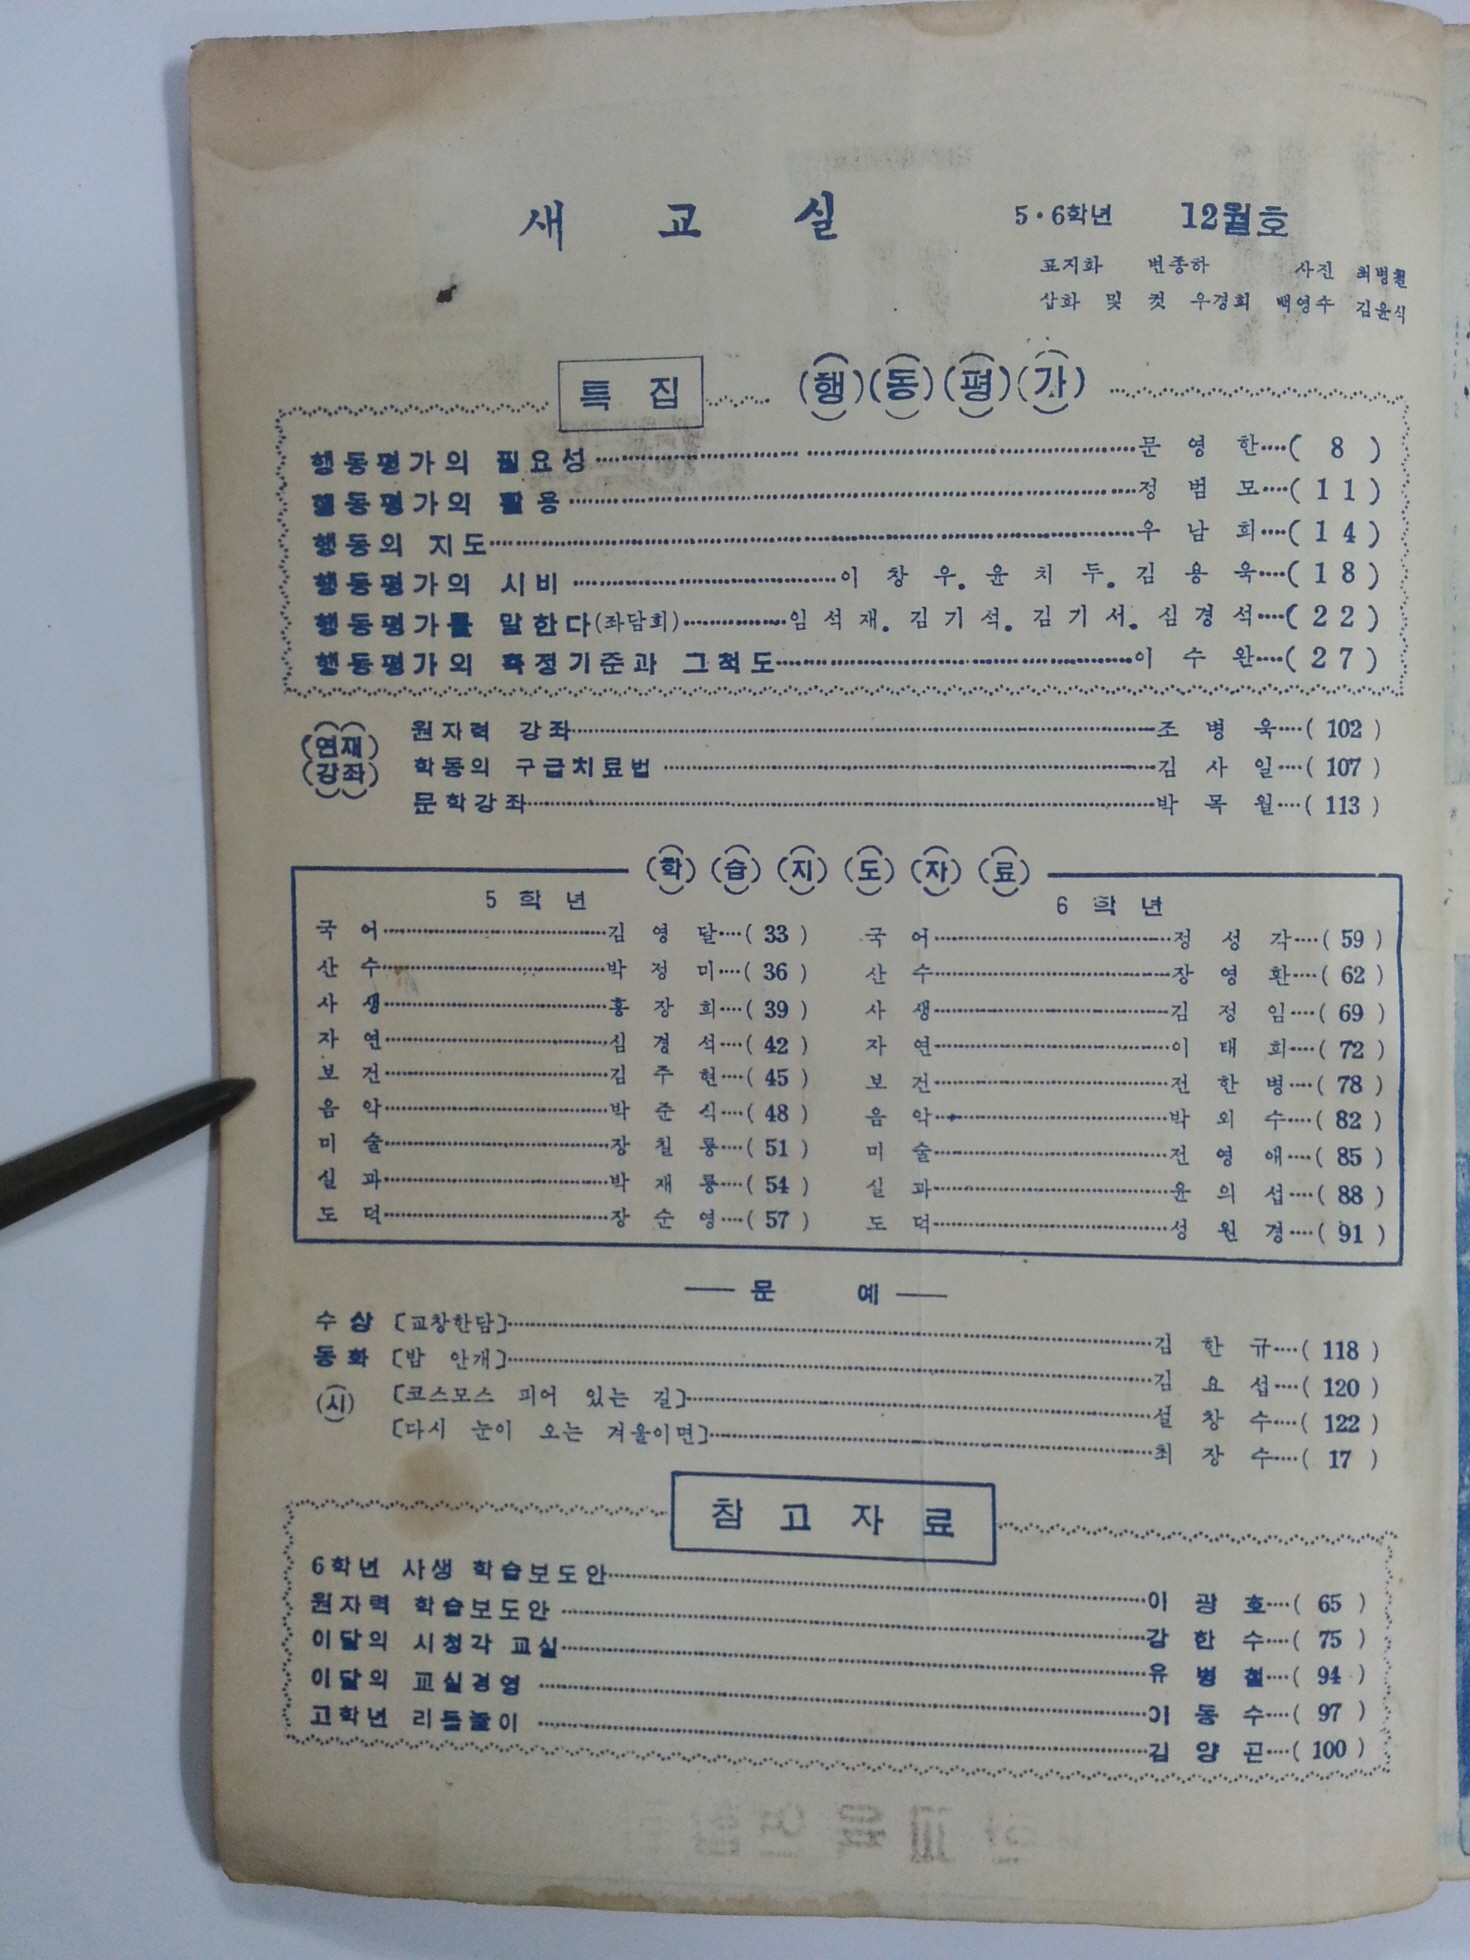 새 교 실 5·6학년 12월호
표지화 변종하 사진 최병철
삽화 및 컷 우경희 백영수 김윤식
특 집 (행)(동)(평)(가)
행동평가의 필요성 문 영 한 ( 8 )
행동평가의 활용 정 범 모 ( 11 )
행동의 지도 우 남 희 ( 14 )
행동평가의 시비 이 창 우. 윤 치 두. 김 용 욱 ( 18 )
행동평가를 말한다(좌담회) 임 석 재. 김 기 석. 김 기 서. 심 경 석 ( 22 )
행동평가의 측정기준과 그척도 이 수 완 ( 27 )
(연재)
(강좌)
원자력 강좌 조 병 욱 ( 102 )
학동의 구급치료법 김 사 일 ( 107 )
문학강좌 박 목 월 ( 113 )
(학)(습)(지)(도)(자)(료)
5 학 년
국 어 김 영 달 ( 33 )
산 수 박 정 미 ( 36 )
사 생 홍 장 희 ( 39 )
자 연 심 경 석 ( 42 )
보 건 김 주 현 ( 45 )
음 악 박 준 식 ( 48 )
미 술 장 칠 룡 ( 51 )
실 과 박 재 룡 ( 54 )
도 덕 장 순 영 ( 57 )
6 학 년
국 어 정 성 각 ( 59 )
산 수 장 영 환 ( 62 )
사 생 김 정 임 ( 69 )
자 연 이 태 희 ( 72 )
보 건 전 한 병 ( 78 )
음 악 박 외 수 ( 82 )
미 술 전 영 애 ( 85 )
실 과 윤 의 섭 ( 88 )
도 덕 성 원 경 ( 91 )
— 문 예 —
수 상 〔교창한담〕 김 한 규 ( 118 )
동 화 〔밤 안개〕 김 요 섭 ( 120 )
(시) 〔코스모스 피어 있는 길〕 설 창 수 ( 122 )
〔다시 눈이 오는 겨울이면〕 최 장 수 ( 17 )
참 고 자 료
6학년 사생 학습보도안 이 광 호 ( 65 )
원자력 학습보도안 강 한 수 ( 75 )
이달의 시청각 교실 유 병 철 ( 94 )
이달의 교실경영 이 동 수 ( 97 )
고학년 리듬놀이 김 양 곤 ( 100 )